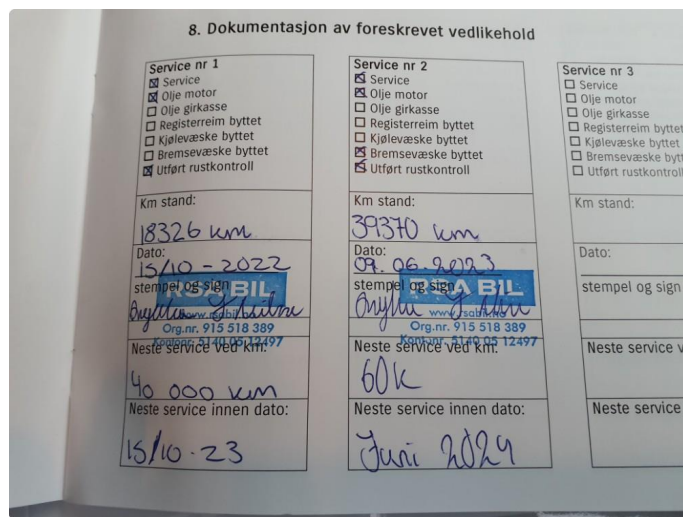 8. Dokumentasjon av foreskrevet vedlikehold
Service nr 1
Service
Olje motor
Olje girkasse
Registerreim byttet
Kjølevæske byttet
Bremsevæske byttet
Utført rustkontroll
Km stand:
18326 km
Dato:
15/10 - 2022
stempel og sign
RSA BIL
www.rsabil.no
Org.nr. 915 518 389
Kontonr: 5140 05 12497
Neste service ved km:
40 000 km
Neste service innen dato:
15/10-23
Service nr 2
Service
Olje motor
Olje girkasse
Registerreim byttet
Kjølevæske byttet
Bremsevæske byttet
Utført rustkontroll
Km stand:
39370 km
Dato:
09.06.2023
stempel og sign
RSA BIL
www.rsabil.no
Org.nr. 915 518 389
Kontonr: 5140 05 12497
Neste service ved km:
60K
Neste service innen dato:
Juni 2024
Service nr 3
Service
Olje motor
Olje girkasse
Registerreim byttet
Kjølevæske byttet
Bremsevæske bytt
Utført rustkontroll
Km stand:
Dato:
stempel og sign
Neste service v
Neste service